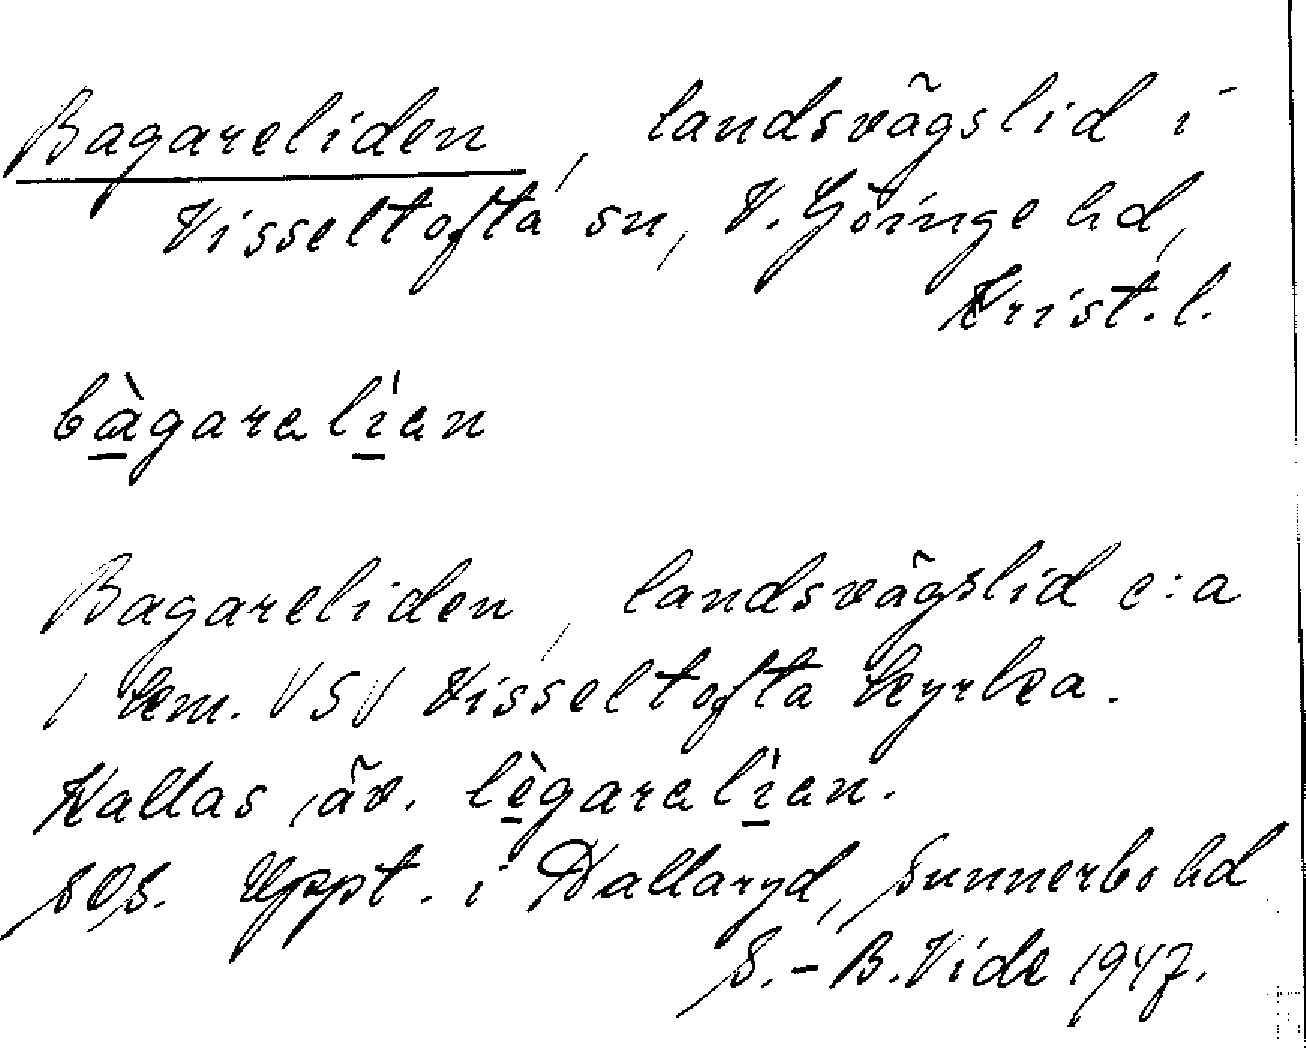 Bagareliden, landsvägslid i
Visseltofta sn, V. Göinge hd,
Krist. l.
bàgaralían
Bagareliden, landsvägslid c:a
1 km. VSV Visseltofta kyrka.
Kallas äv. lègaralìan.
Uppt. i Hallaryd, Sunnerbo hd
S.-B. Vide 1947.